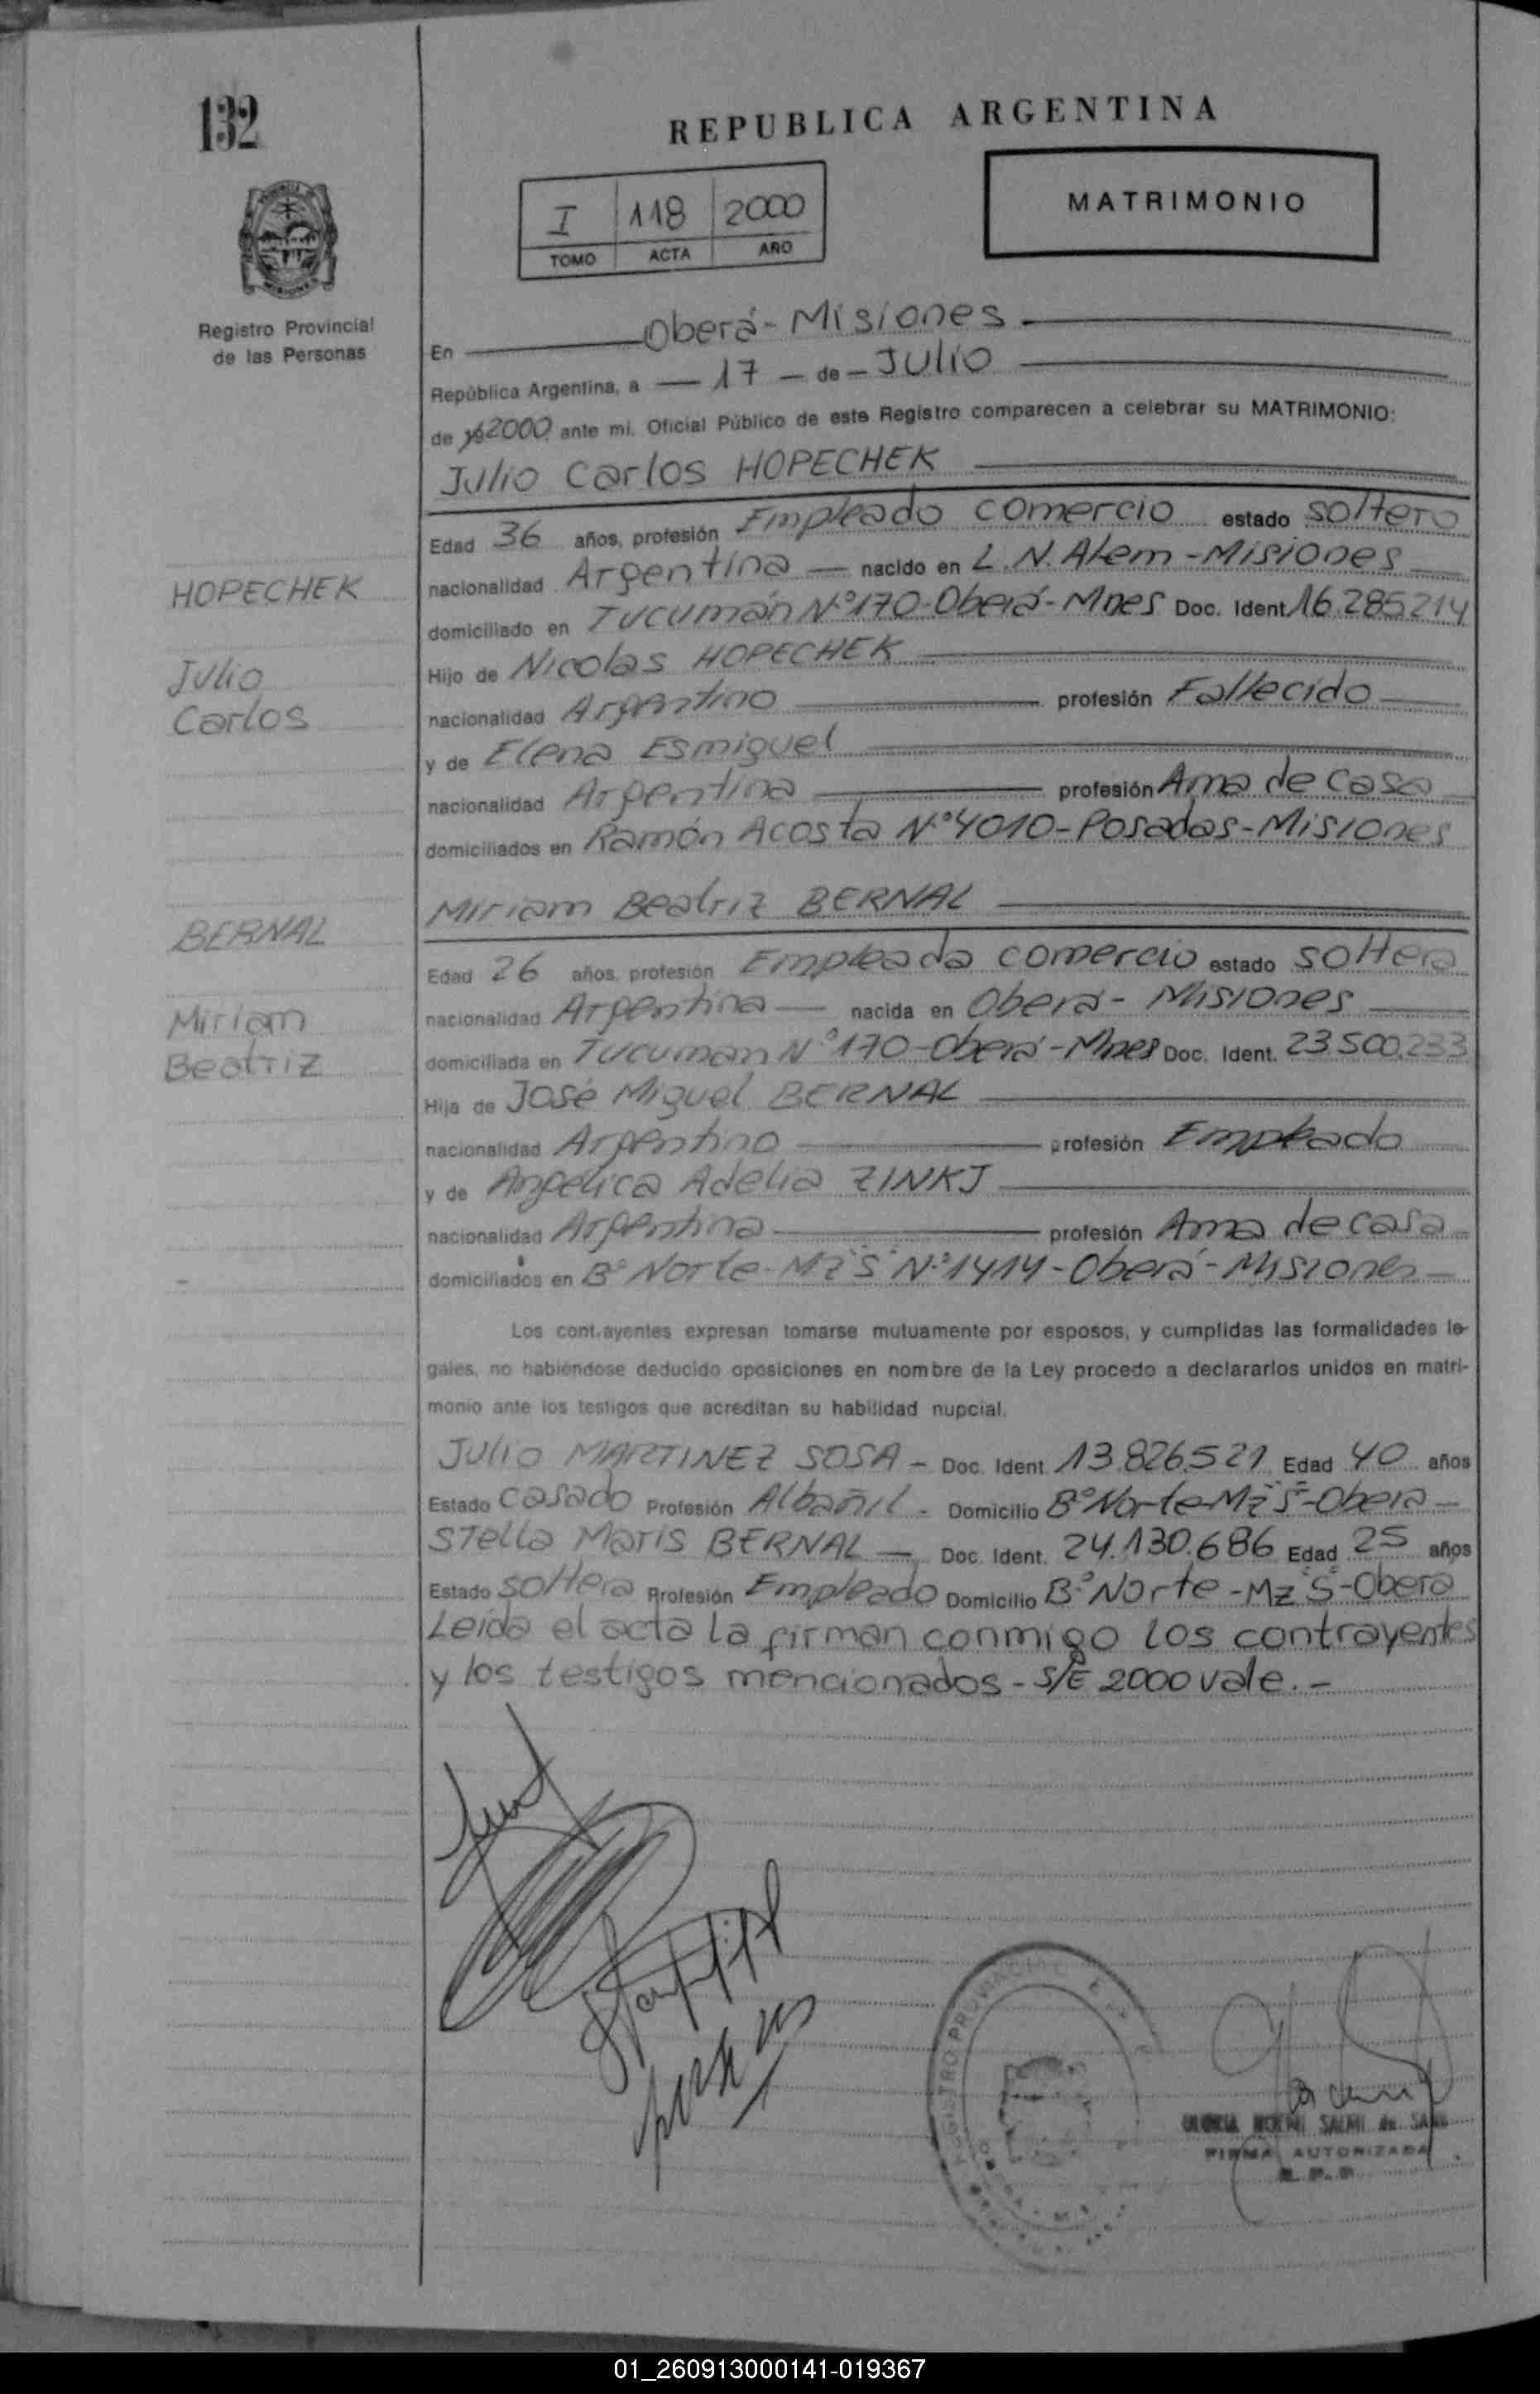 132
REPUBLICA ARGENTINA
I 118 2000
TOMO ACTA AÑO
MATRIMONIO
Registro Provincial
de las Personas
En Oberá - Misiones
República Argentina, a 17 de Julio
de 2000 ante mí, Oficial Público de este Registro comparecen a celebrar su MATRIMONIO:
Julio Carlos HOPECHEK
Edad 36 años, profesión Empleado comercio estado soltero
nacionalidad Argentina nacido en L. N. Alem - Misiones
HOPECHEK
domiciliado en Tucumán N.º 170 - Oberá - Mnes Doc. Ident. 16.285.214
Hijo de Nicolas HOPECHEK
Julio
nacionalidad Argentino profesión Fallecido
Carlos
y de Elena Esmiguel
nacionalidad Argentina profesión Ama de casa
domiciliados en Ramón Acosta N.º 4010 - Posadas - Misiones
Miriam Beatriz BERNAL
BERNAL
Edad 26 años, profesión Empleada comercio estado soltera
nacionalidad Argentina nacida en Oberá - Misiones
Miriam
domiciliada en Tucuman N.º 170 - Oberá - Mnes Doc. Ident. 23.500.233
Beatriz
Hija de José Miguel BERNAL
nacionalidad Argentino profesión Empleado
y de Angelica Adelia ZINKJ
nacionalidad Argentina profesión Ama de casa
domiciliados en B.º Norte - Mz "S" N.º 1414 - Oberá - Misiones
Los contrayentes expresan tomarse mutuamente por esposos, y cumplidas las formalidades le-
gales, no habiéndose deducido oposiciones en nombre de la Ley procedo a declararlos unidos en matri-
monio ante los testigos que acreditan su habilidad nupcial.
Julio MARTINEZ SOSA - Doc. Ident. 13.826.521 Edad 40 años
Estado Casado Profesión Albañil - Domicilio B.º Norte - Mz "S" - Obera
Stella Maris BERNAL - Doc. Ident. 24.130.686 Edad 25 años
Estado soltera Profesión Empleado Domicilio B.º Norte - Mz "S" - Oberá
Leída el acta la firman conmigo los contrayentes
y los testigos mencionados - S/E 2000 vale. -
REGISTRO PROVINCIAL
SALMI de
FIRMA AUTORIZADA
R. P. P.
01_260913000141-019367